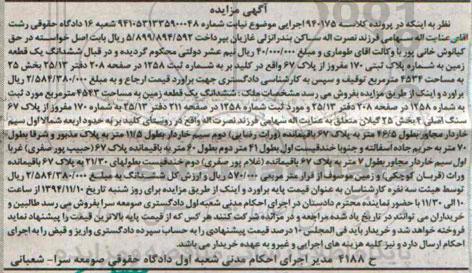 آگهی مزایده
نظر به اینکه در پرونده کلاسه ۹۴۰۱۷۵ اجرایی موضوع نیابت شماره ۹۴۱۰۵۳۱۳۳۵۹۰۰۰۴۸ شعبه ۱۶ دادگاه حقوقی رشت
آقای عنایت اله سهامی فرزند نصرت اله ساکن بندرانزلی غازیان بپرداخت ۵/۸۹۹/۸۹۴/۵۹۲ ریال بابت اصل خواسته در حق
کیانوش خانی پور با وکالت آقای طوماری و مبلغ ۴۰/۰۰۰/۰۰۰ ریال نیم عشر دولتی محکوم گردیده و در قبال ششدانگ یک قطعه
زمین به شماره پلاک ثبتی ۱۷۰ مفروز از پلاک ۶۷ واقع در کلیدبر به ثبت ۱۲۵۸ در صفحه ۲۰۸ دفتر ۲۵/۱۳ بخش ۲۵
به مساحت ۴۵۳۴ مترمربع توقیف و سپس به کارشناسی دادگستری جهت برآورد قیمت ارجاع و به مبلغ ۲/۵۸۴/۳۸۰/۰۰۰ ریال
برآورد و اینک از طریق مزایده بفروش می رسد مشخصات ملک: ششدانگ یک قطعه زمین به مساحت ۴۵۴۳ مترمربع مورد ثبت
به شماره ۱۲۵۸ در صفحه ۲۰۸ دفتر ۲۵/۱۳ و مورد ثبت شماره ۱۲۵۸ در صفحه ۲۱۱ دفتر ۲۵/۱۳ به شماره ۱۷۰ مفروز از پلاک ۶۷
سنگ اصلی ۴ بخش ۲۵ گیلان متعلق به عنایت اله سهامی فرزند نصرت اله واقع در روستای کلید بر به حدود اربعه شمالا اول سیم
خاردار مجاور بطول ۴۶/۵ متر به پلاک ۶۷ باقیمانده (وراث رضایی) دوم سیم خاردار بطول ۱۱/۵ متر به پلاک مذبور و شرقا بطول
۷۰ متر به حریم جاده آسفالته و جنوبا خندقیست اول بطول ۴۱ متر دوم بطول ۶۰ متر به باقیمانده پلاک ۶۷ (حبیب پور صفری) غربا
اول سیم خاردار مجاور بطول ۷ متر به پلاک ۶۷ باقیمانده (غلام پور سفری) دوم خندقیست بطولهای ۲۱/۳۰ به پلاک ۶۷ باقیمانده
۲/۵۸۴/۳۸۰/۰۰۰ ریال
توسط هیئت سه نفره کارشناسان به عنوان قیمت پایه برآورد و اینک از طریق مزایده برای روز شنبه تاریخ ۱۳۹۴/۱۱/۱۰ از ساعت
۱۰ الی ۱۱/۳۰ با حضور نماینده محترم دادستان در اجرای احکام مدنی شعبه اول دادگستری صومعه سرا بفروش می رسد طالبین و
خریداران می توانند در تاریخ یاد شده مراجعه و در مزایده شرکت کنند هر کس که از قیمت پایه بالاترین قیمت را پیشنهاد نماید
فروخته خواهد شد و خریدار باید فی المجلس ۱۰ درصد قیمت پیشنهادی را به حساب سپرده دادگستری واریز و قبض را به اجرای
احکام ارسال دارد و نیز کلیه هزینه های اجرایی و غیره به عهده خریدار می باشد.
ح ۴۱۸۸ مدیر اجرای احکام مدنی شعبه اول دادگاه حقوقی صومعه سرا- شعبانی